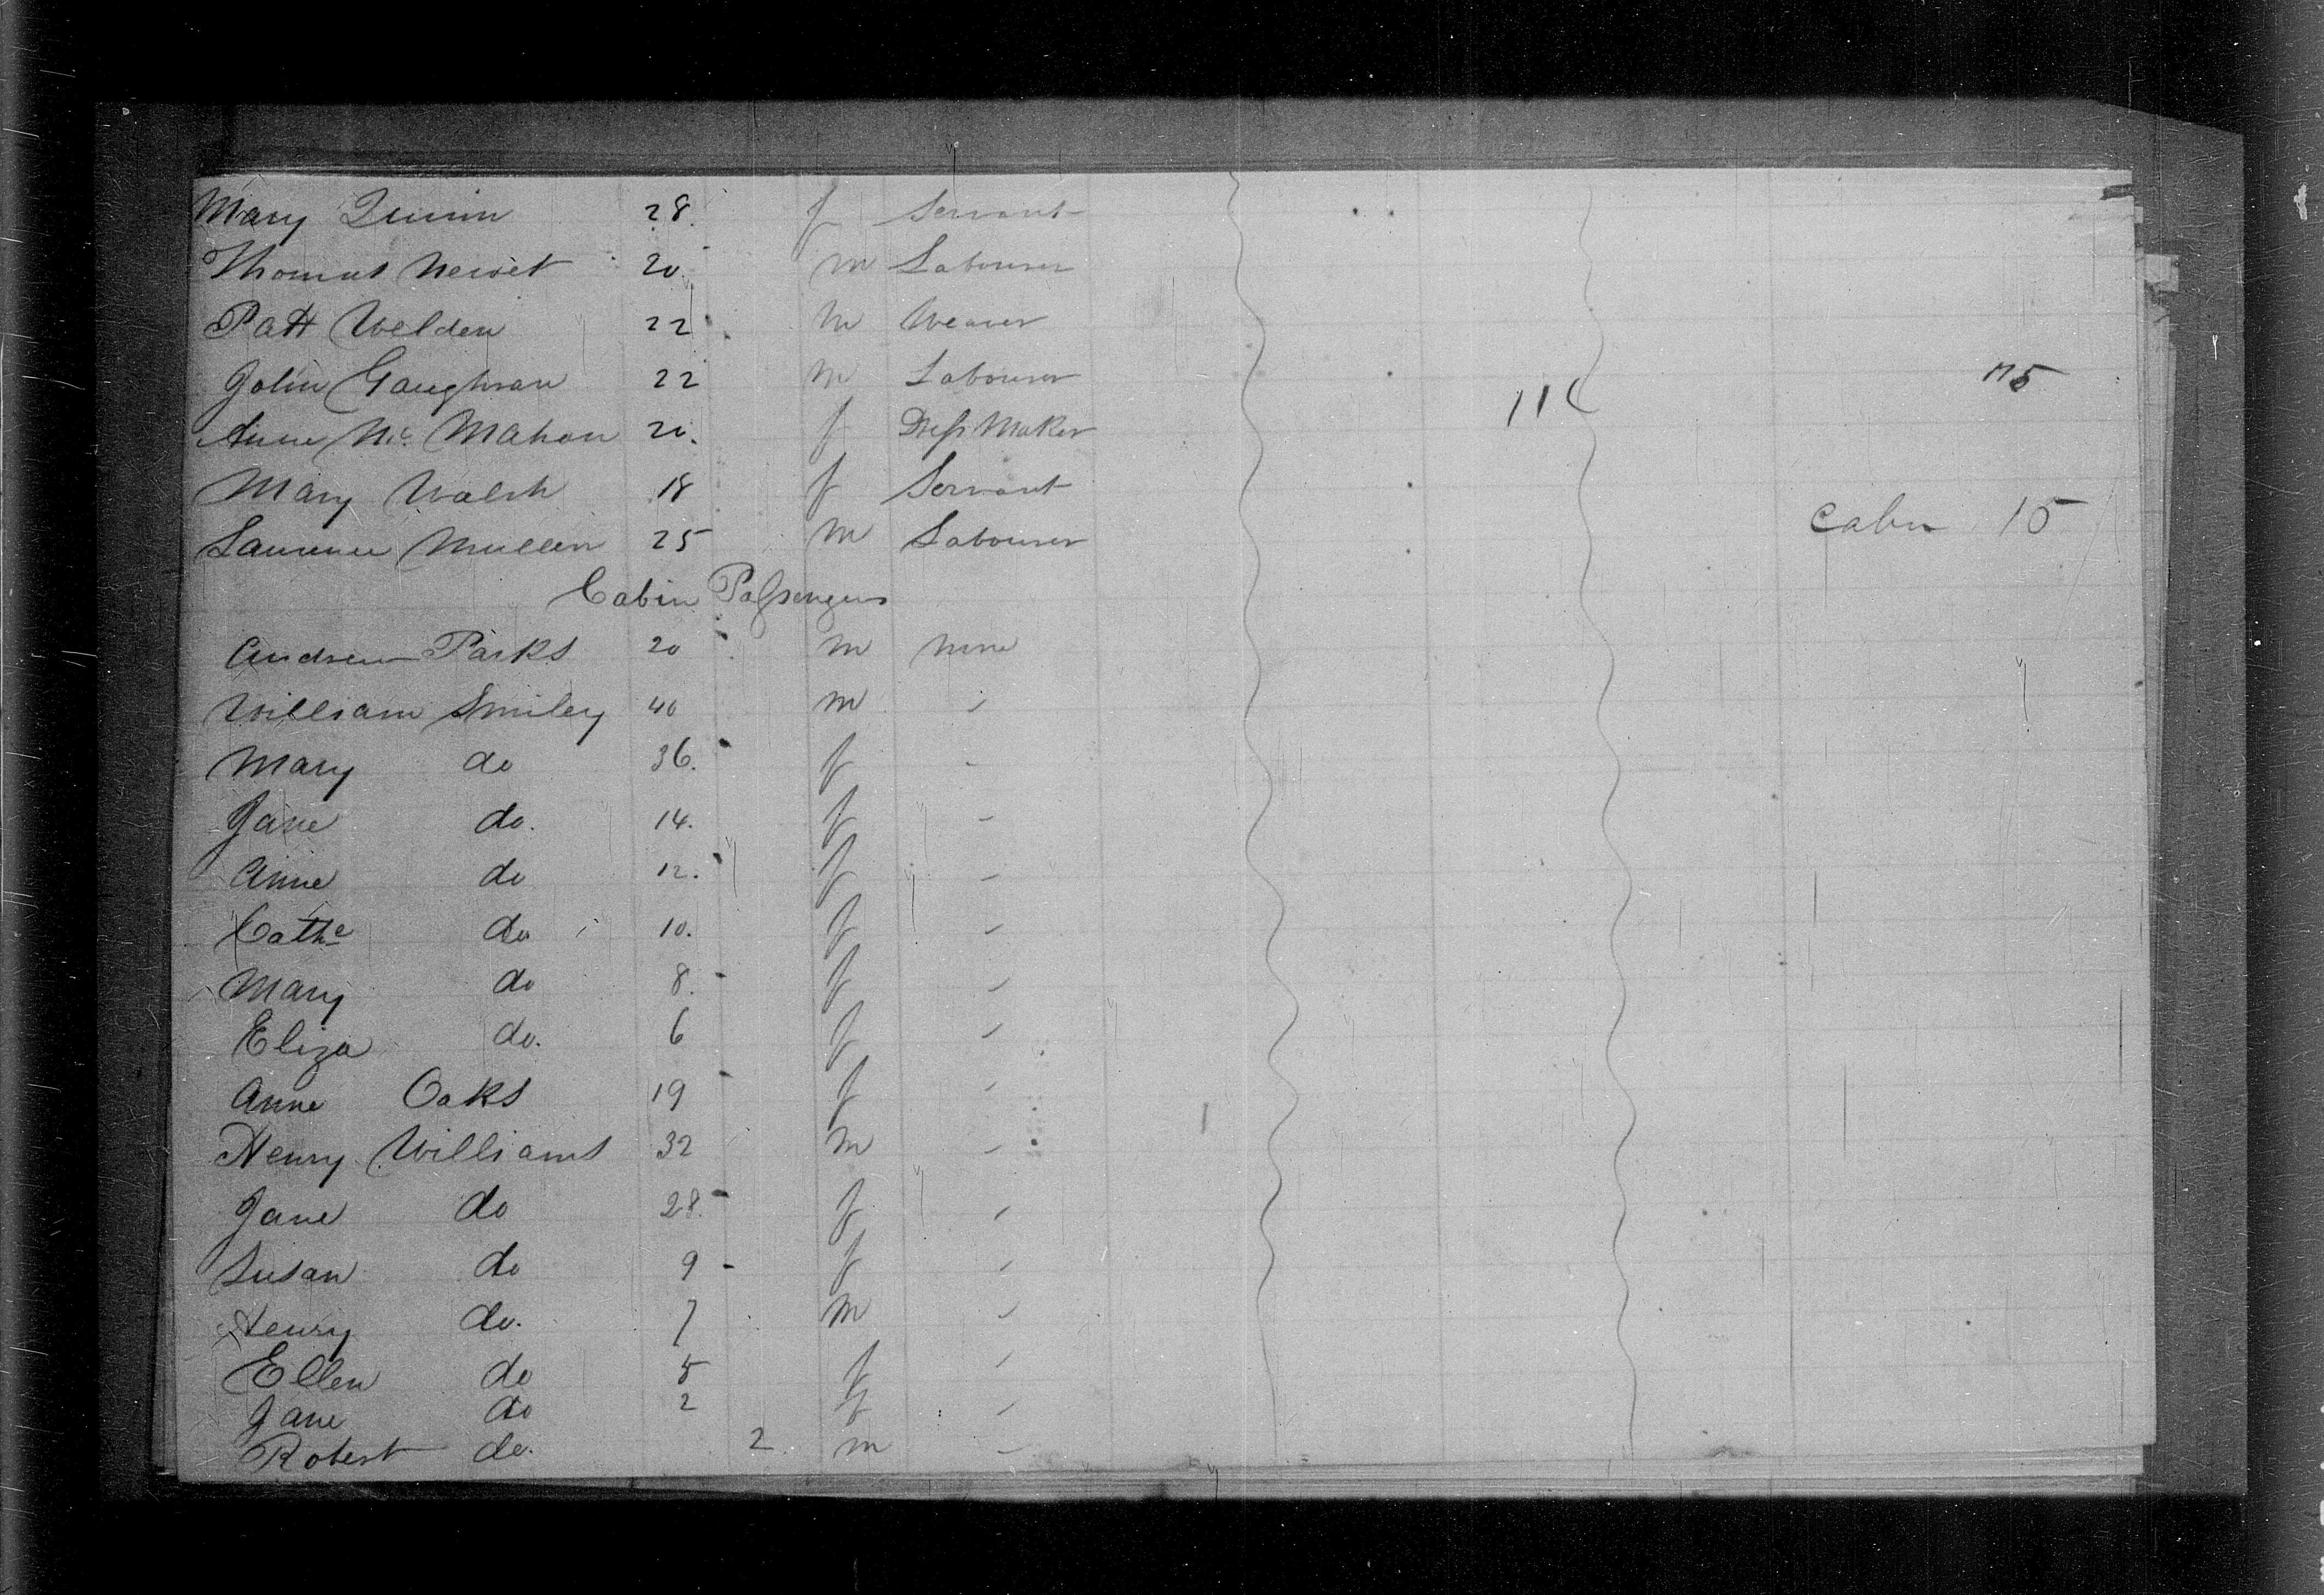 Mary Quinn 28 f Servant
Thomas Newet 20 m Labourer
Patt Welden 22 m Weaver
John Gaughran 22 m Labourer
Anne Mc Mahon 20 f Dress Maker
Mary Walsh 18 f Servant
Laurence Mullen 25 m Labourer
Cabin 15
Cabin Passengers
Andrew Parks 20 m none
William Smiley 40 m
Mary do 36 f -
Jane do. 14. f -
Anne do 12. f -
Cathe do 10. f -
Mary do 8. f -
Eliza do. 6 f -
Anne Oaks 19 f -
Henry Williams 32 m -
Jane do 28. f -
Susan do 9 f -
Henry do. 7 m -
Ellen do 5 f -
Jane do 2 f -
Robert do. 2 m -